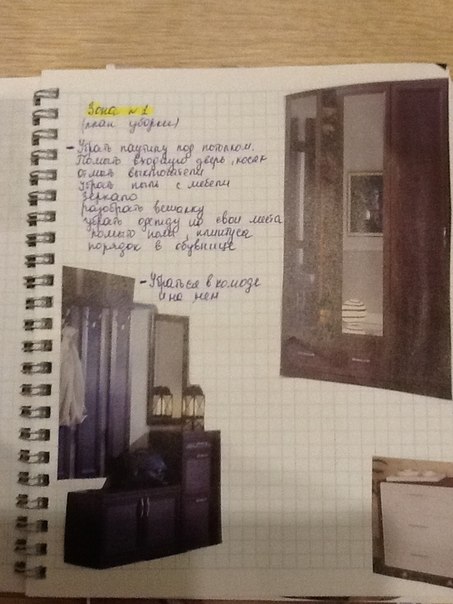 Зона №1
(план уборки)
- Убрать паутину под потолком.
Помыть входную дверь, косяк
отмыть выключатели
Убрать пыль с мебели
зеркало
разобрать вешалку
убрать одежду на свои места
помыть полы, плинтуса
порядок в обувнице
- Убраться в комоде
и на нем